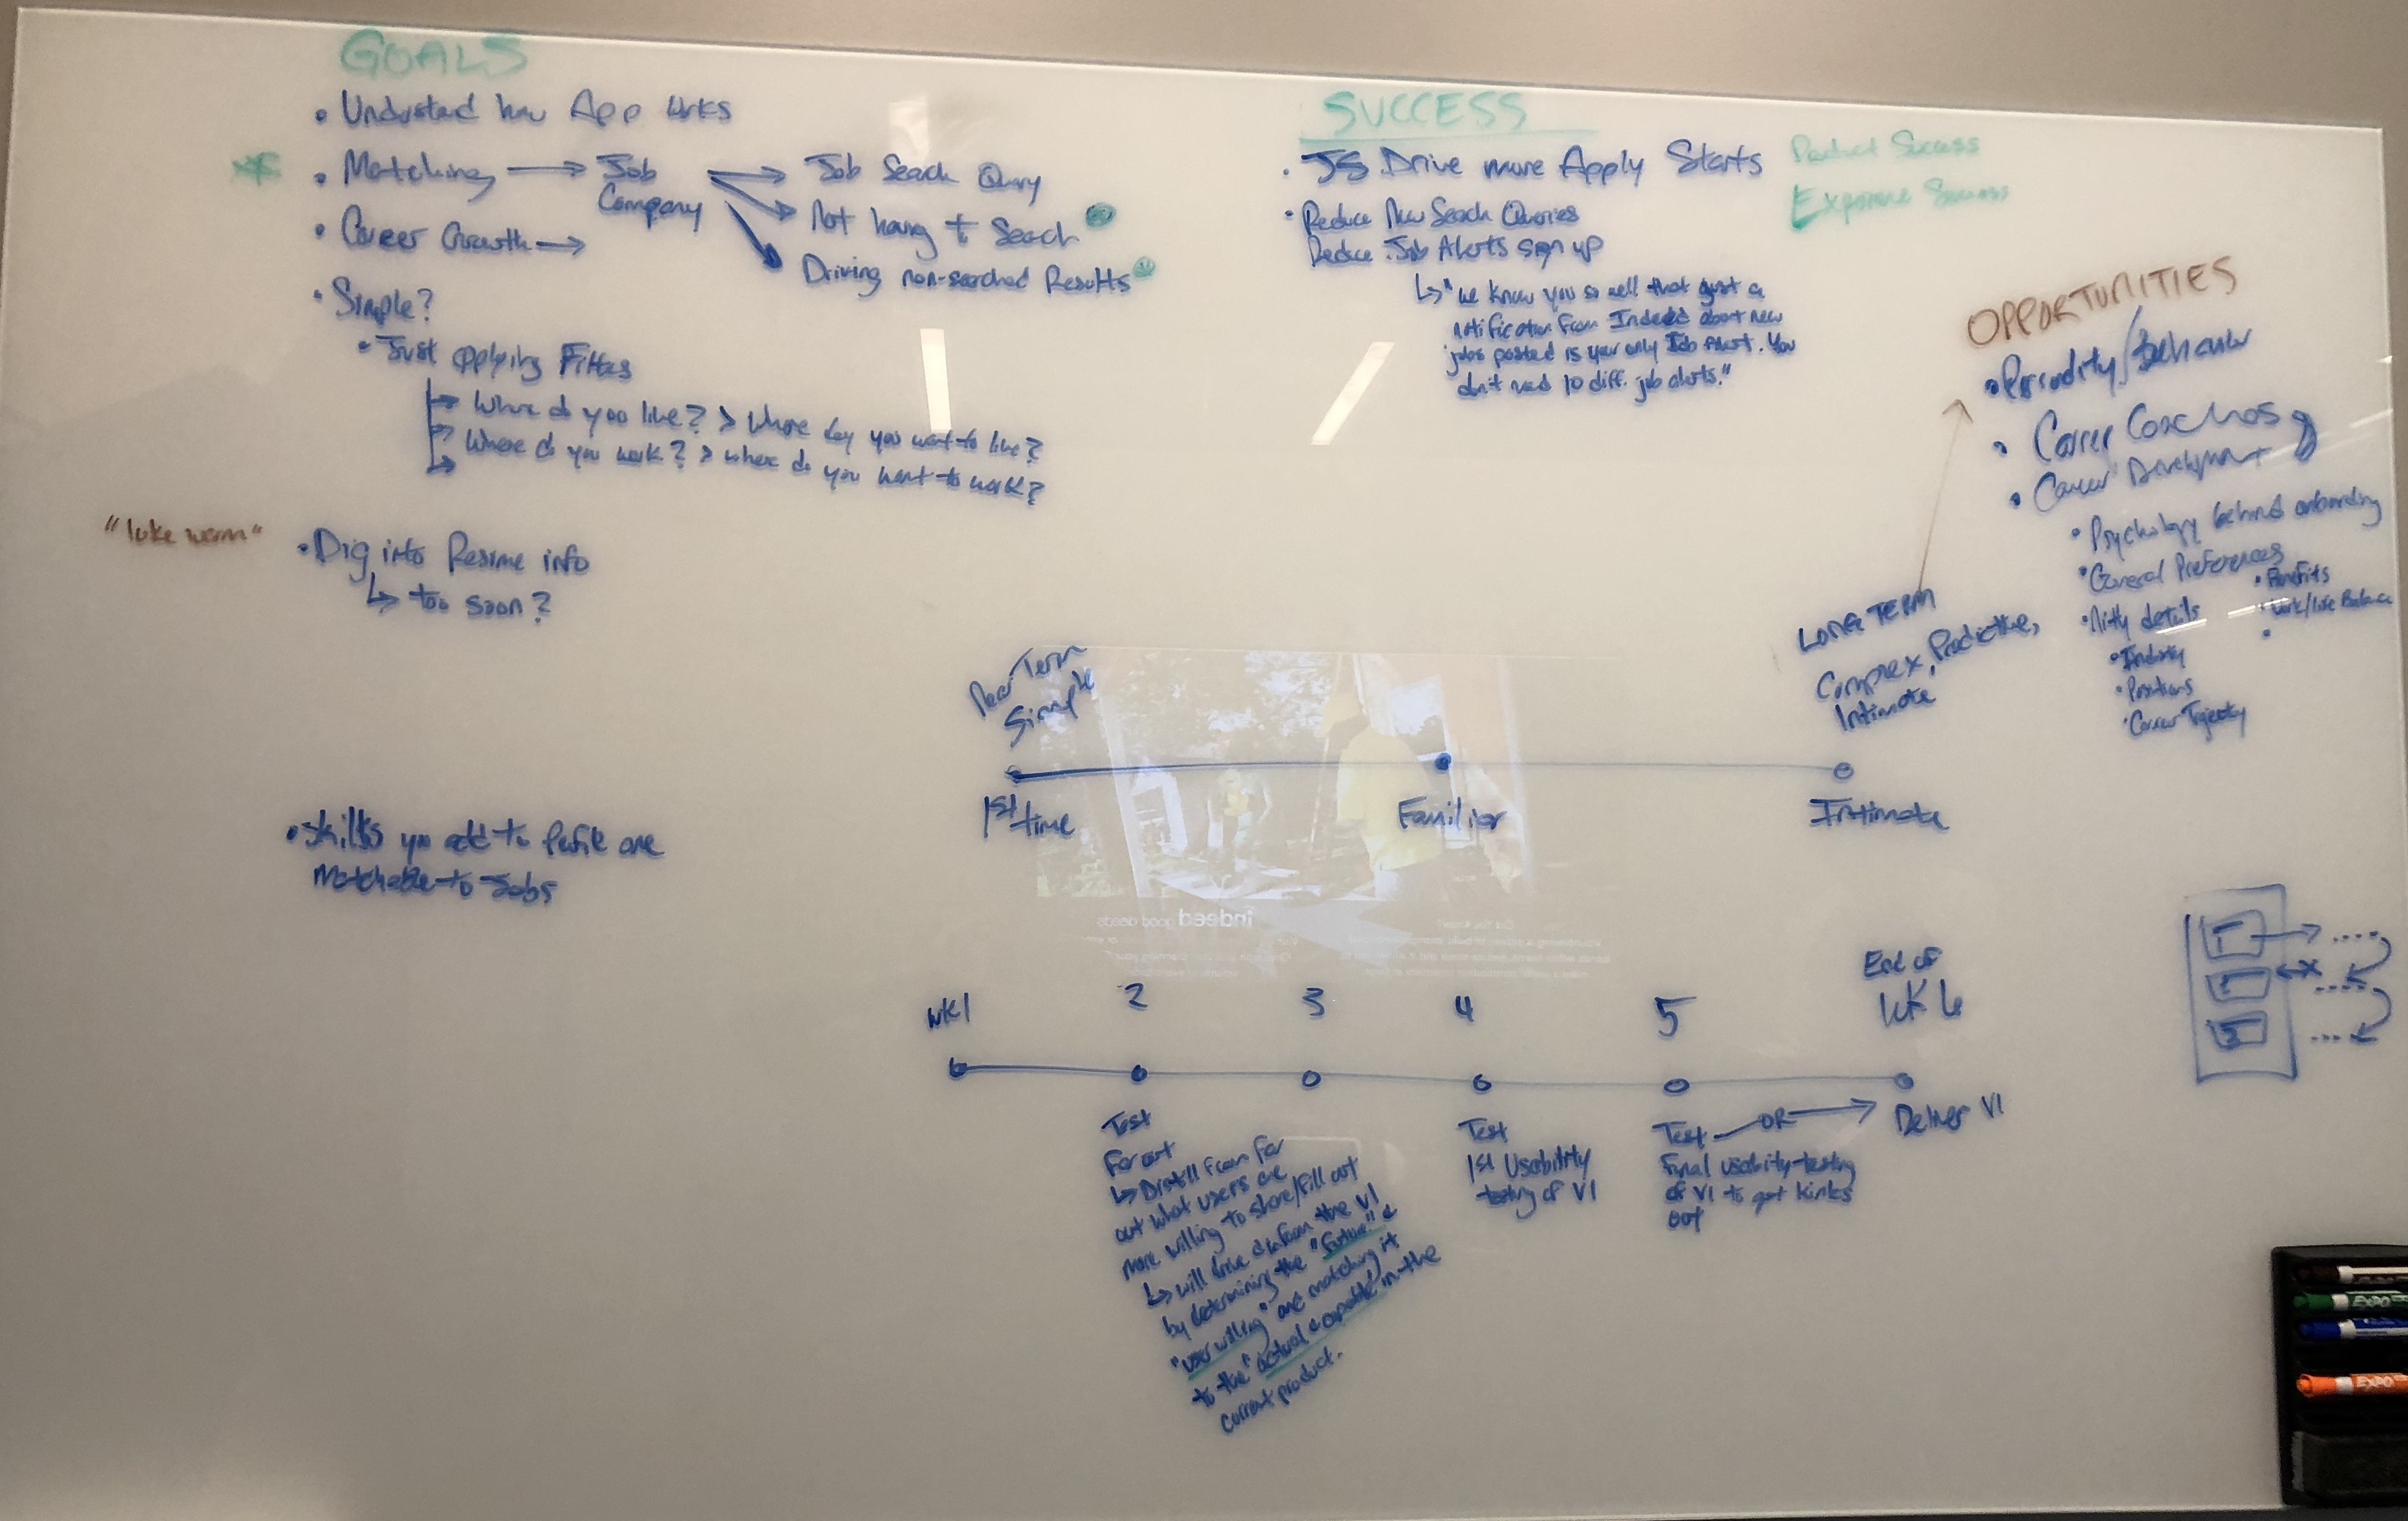 GOALS
• Understand how App Works
• Matching → Job Company
→ Job Search Query
→ Not having to Search
→ Driving non-searched Results
• Career Growth →
• Simple?
• Just applying Filters
→ Where do you live? > Where do you want to live?
→ Where do you work? > where do you want to work?
→
"luke warm"
• Dig into Resume info
↳ too soon?
• Skills you add to Profile are
Matchable to Jobs
SUCCESS
• JS Drive more Apply Starts
Product Success
Experience Success
• Reduce New Search Queries
Reduce Job Alerts sign up
↳ "We know you so well that just a
notification from Indeed about new
jobs posted is your only Job Alert. You
don't need 10 diff. job alerts."
OPPORTUNITIES
• /Behavior
• Career Coaching
• Career Development
• Psychology behind onboarding
• General Preferences
• Benefits
• Work/Life Balance
•
• Nitty details
• Industry
• Positions
• Career Trajectory
Near Term
Simple
LONG TERM
Complex, Predictive,
Intimate
1st time
Familiar
Intimate
indeed good deeds
Did You Know?
WK1
2
3
4
5
End of
WK 6
Test
Far out
↳ Distill from far
out what users are
more willing to share/fill out
↳ will drive & inform the V1
by determining the "future" &
"user willing" and matching it
to the "actual & capable" in the
current product.
Test
1st Usability
testing of V1
Test — OR →
Final usability testing
of V1 to get kinks
out
Deliver V1
EXPO
EXPO